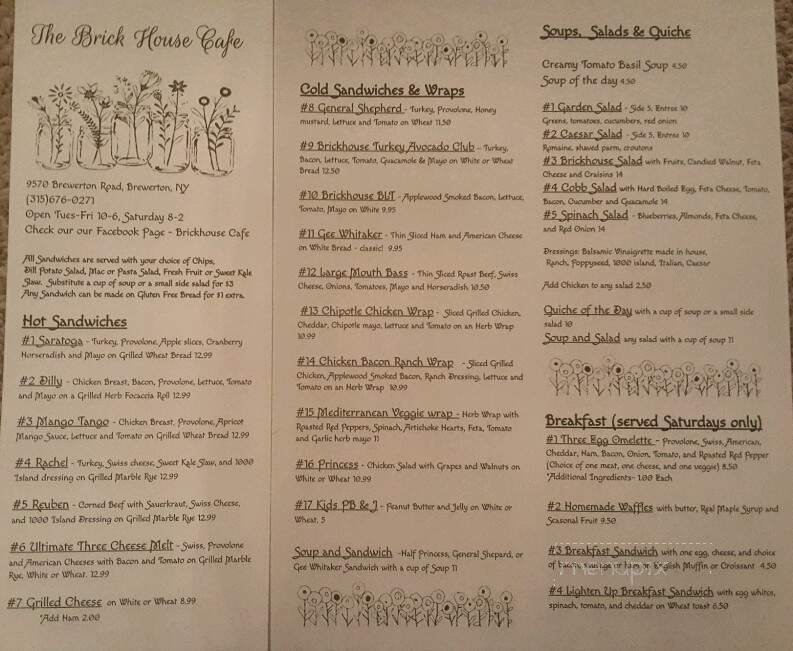 The Brick House Cafe
9570 Brewerton Road, Brewerton, NY
(315)676-0271
Open Tues-Fri 10-6, Saturday 8-2
Check our our Facebook Page - Brickhouse Cafe
All Sandwiches are served with your choice of Chips,
Dill Potato Salad, Mac or Pasta Salad, Fresh Fruit or Sweet Kale
Slaw. Substitute a cup of soup or a small side salad for $3
Any Sandwich can be made on Gluten Free Bread for $1 extra.
Hot Sandwiches
#1 Saratoga - Turkey, Provolone, Apple slices, Cranberry
Horseradish and Mayo on Grilled Wheat Bread 12.99
#2 Dilly - Chicken Breast, Bacon, Provolone, Lettuce, Tomato
and Mayo on a Grilled Herb Focaccia Roll 12.99
#3 Mango Tango - Chicken Breast, Provolone, Apricot
Mango Sauce, Lettuce and Tomato on Grilled Wheat Bread 12.99
#4 Rachel - Turkey, Swiss cheese, Sweet Kale Slaw, and 1000
Island dressing on Grilled Marble Rye 12.99
#5 Reuben - Corned Beef with Sauerkraut, Swiss Cheese,
and 1000 Island Dressing on Grilled Marble Rye 12.99
#6 Ultimate Three Cheese Melt - Swiss, Provolone
and American Cheeses with Bacon and Tomato on Grilled Marble
Rye, White or Wheat. 12.99
#7 Grilled Cheese on White or Wheat 8.99
*Add Ham 2.00
Cold Sandwiches & Wraps
#8 General Shepherd - Turkey, Provolone, Honey
mustard, Lettuce and Tomato on Wheat 11.50
#9 Brickhouse Turkey Avocado Club - Turkey,
Bacon, Lettuce, Tomato, Guacamole & Mayo on White or Wheat
Bread 12.50
#10 Brickhouse BLT - Applewood Smoked Bacon, Lettuce,
Tomato, Mayo on White 9.95
#11 Gee Whitaker - Thin Sliced Ham and American Cheese
on White Bread - classic! 9.95
#12 Large Mouth Bass - Thin Sliced Roast Beef, Swiss
Cheese, Onions, Tomatoes, Mayo and Horseradish 10.50
#13 Chipotle Chicken Wrap - Sliced Grilled Chicken,
Cheddar, Chipotle mayo, Lettuce and Tomato on an Herb Wrap
10.99
#14 Chicken Bacon Ranch Wrap - Sliced Grilled
Chicken, Applewood Smoked Bacon, Ranch Dressing, Lettuce and
Tomato on an Herb Wrap 10.99
#15 Mediterranean Veggie wrap - Herb Wrap with
Roasted Red Peppers, Spinach, Artichoke Hearts, Feta, Tomato
and Garlic herb mayo 11
#16 Princess - Chicken Salad with Grapes and Walnuts on
White or Wheat 10.99
#17 Kids PB & J - Peanut Butter and Jelly on White or
Wheat. 5
Soup and Sandwich -Half Princess, General Shepard, or
Gee Whitaker Sandwich with a cup of Soup 11
Soups, Salads & Quiche
Creamy Tomato Basil Soup 4.50
Soup of the day 4.50
#1 Garden Salad - Side 5, Entree 10
Greens, tomatoes, cucumbers, red onion
#2 Caesar Salad - Side 5, Entree 10
Romaine, shaved parm, croutons
#3 Brickhouse Salad with Fruits, Candied Walnut, Feta
Cheese and Craisins 14
#4 Cobb Salad with Hard Boiled Egg, Feta Cheese, Tomato,
Bacon, Cucumber and Guacamole 14
#5 Spinach Salad - Blueberries, Almonds, Feta Cheese,
and Red Onion 14
Dressings: Balsamic Vinaigrette made in house,
Ranch, Poppyseed, 1000 island, Italian, Caesar
Add Chicken to any salad 2.50
Quiche of the Day with a cup of soup or a small side
salad 10
Soup and Salad any salad with a cup of soup 11
Breakfast (served Saturdays only)
#1 Three Egg Omelette - Provolone, Swiss, American,
Cheddar, Ham, Bacon, Onion, Tomato, and Roasted Red Pepper
(Choice of one meat, one cheese, and one veggie) 8.50
*Additional Ingredients- 1.00 Each
#2 Homemade Waffles with butter, Real Maple Syrup and
Seasonal Fruit 9.50
#3 Breakfast Sandwich with one egg, cheese, and choice
of bacon, sausage or ham on English Muffin or Croissant 4.50
menupix
#4 Lighten Up Breakfast Sandwich with egg whites,
spinach, tomato, and cheddar on Wheat toast 6.50